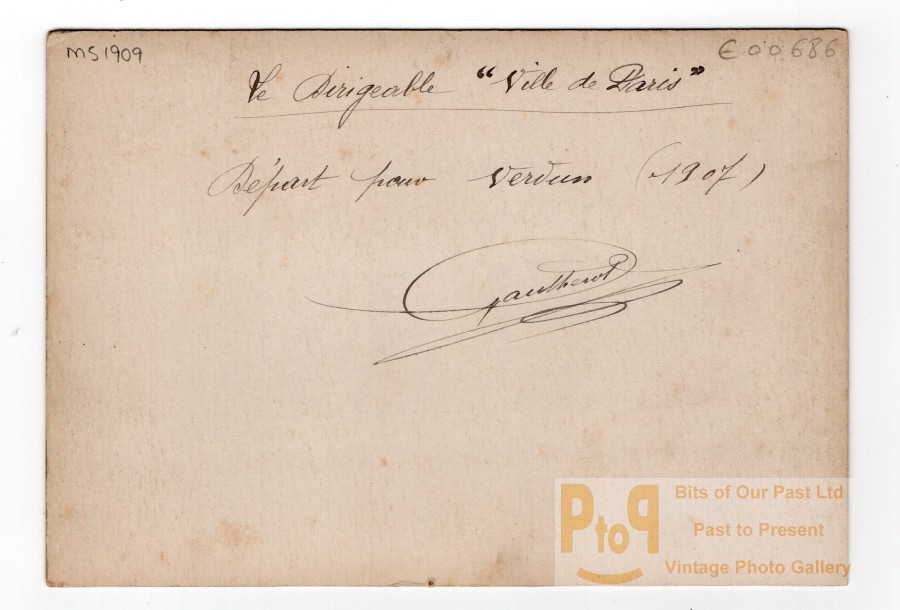 MS1909
€00686
Le Dirigeable "Ville de Paris"
Départ pour Verdun (1907)
Gautherot
PtoP
Bits of Our Past Ltd
Past to Present
Vintage Photo Gallery